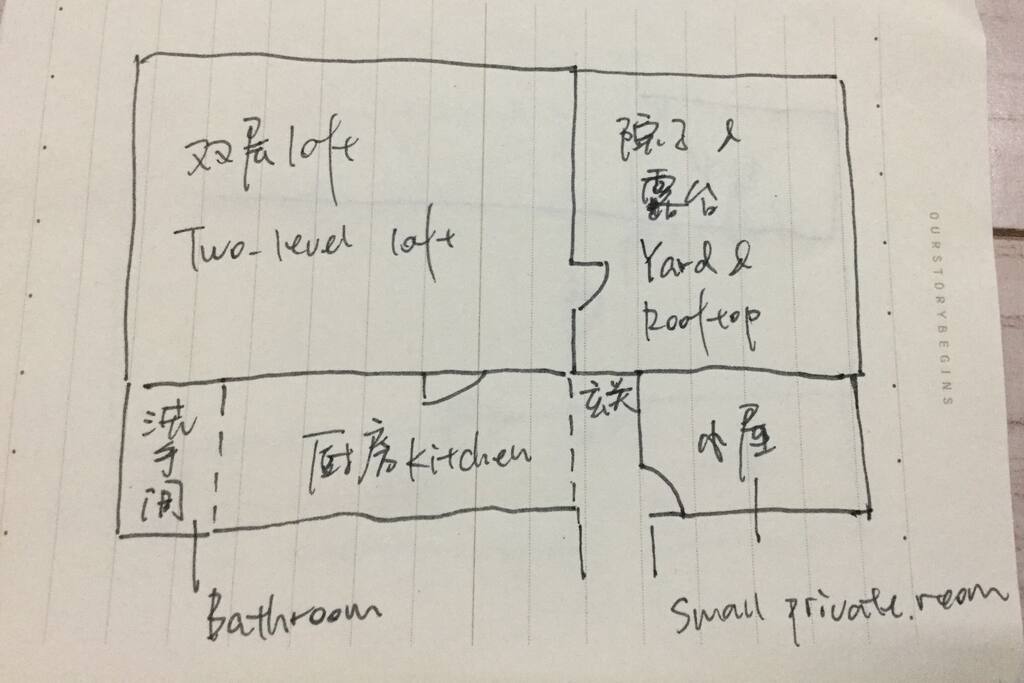 双层loft
Two-level loft
院子 &
露台
Yard &
Rooftop
洗手间
厨房kitchen
玄关
小屋
Bathroom
Small private room
OURSTORYBEGINS